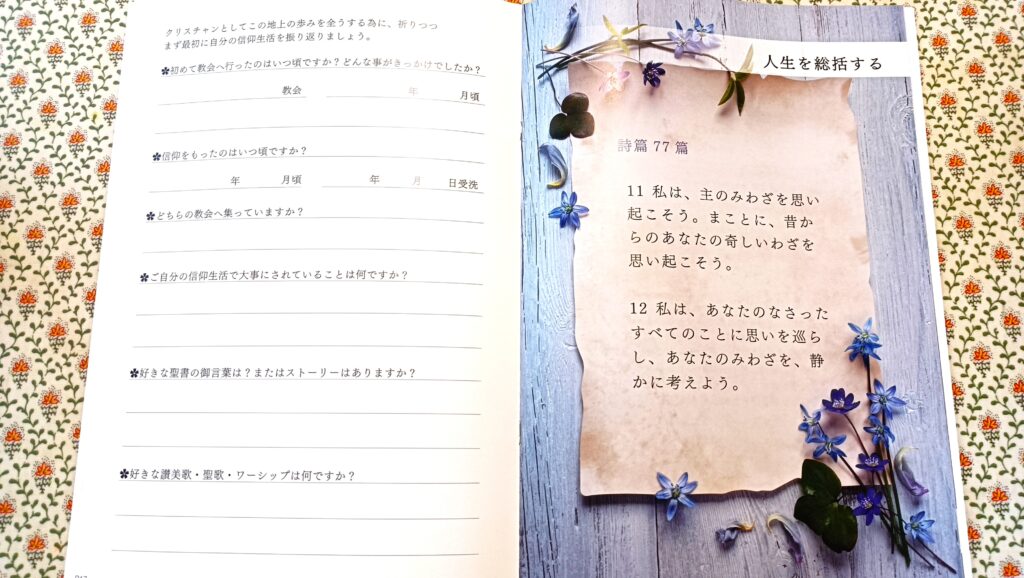 クリスチャンとしてこの地上の歩みを全うする為に、祈りつつ
まず最初に自分の信仰生活を振り返りましょう。
✽初めて教会へ行ったのはいつ頃ですか？どんな事がきっかけでしたか？
教会 年 月頃
✽信仰をもったのはいつ頃ですか？
年 月頃 年 月 日受洗
✽どちらの教会へ集っていますか？
✽ご自分の信仰生活で大事にされていることは何ですか？
✽好きな聖書の御言葉は？またはストーリーはありますか？
✽好きな讃美歌・聖歌・ワーシップは何ですか？
人生を総括する
詩篇 77 篇
11 私は、主のみわざを思い
起こそう。まことに、昔か
らのあなたの奇しいわざを
思い起こそう。
12 私は、あなたのなさった
すべてのことに思いを巡ら
し、あなたのみわざを、静
かに考えよう。